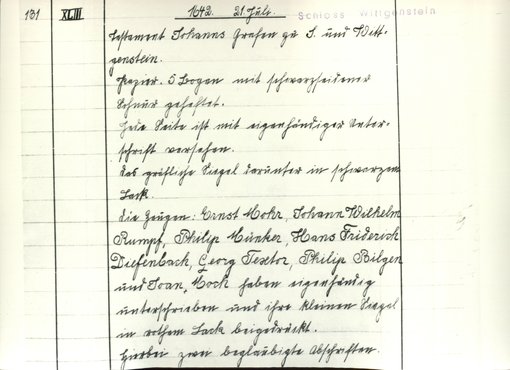 131 XLIII 1642. 21 Juli. Schloss Wittgenstein
Testament Johanns Grafen zu S. und Witt-
genstein.
Papier. 5 Bogen mit schwarzseidener
Schnur geheftet.
Jede Seite ist mit eigenhändiger Unter-
schrift versehen.
Das gräfliche Siegel darunter in schwarzem
Lack.
Die Zeugen: Ernst Mohr, Johann Wilhelm
Rumpf, Philip Münker, Hans Friderich
Diefenbach, Georg Textor, Philip Bilgen
und Joan, Moch haben eigenhändig
unterschrieben und ihre kleinen Siegel
in rothem Lack beigedrückt.
Hierbei zwei beglaubigte Abschriften.